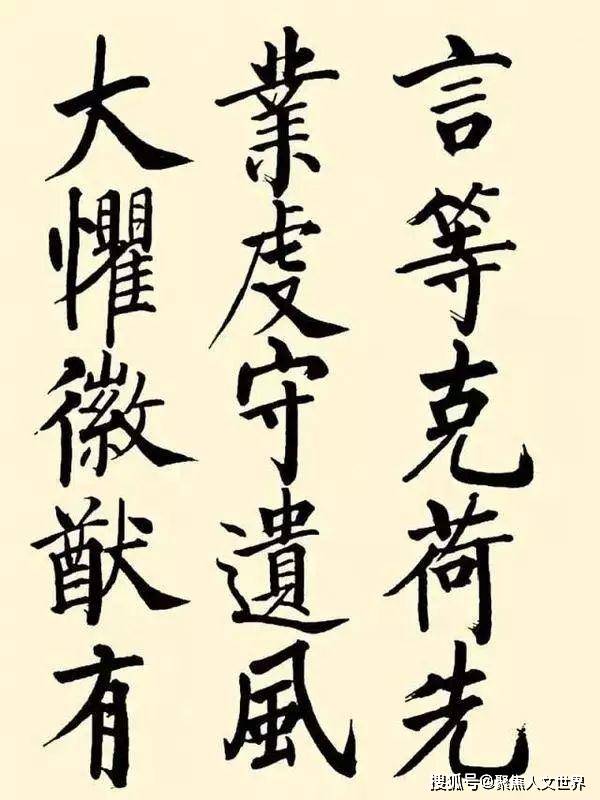 言等克荷先
業虔守遺風
大懼徽猷有
搜狐号@聚焦人文世界